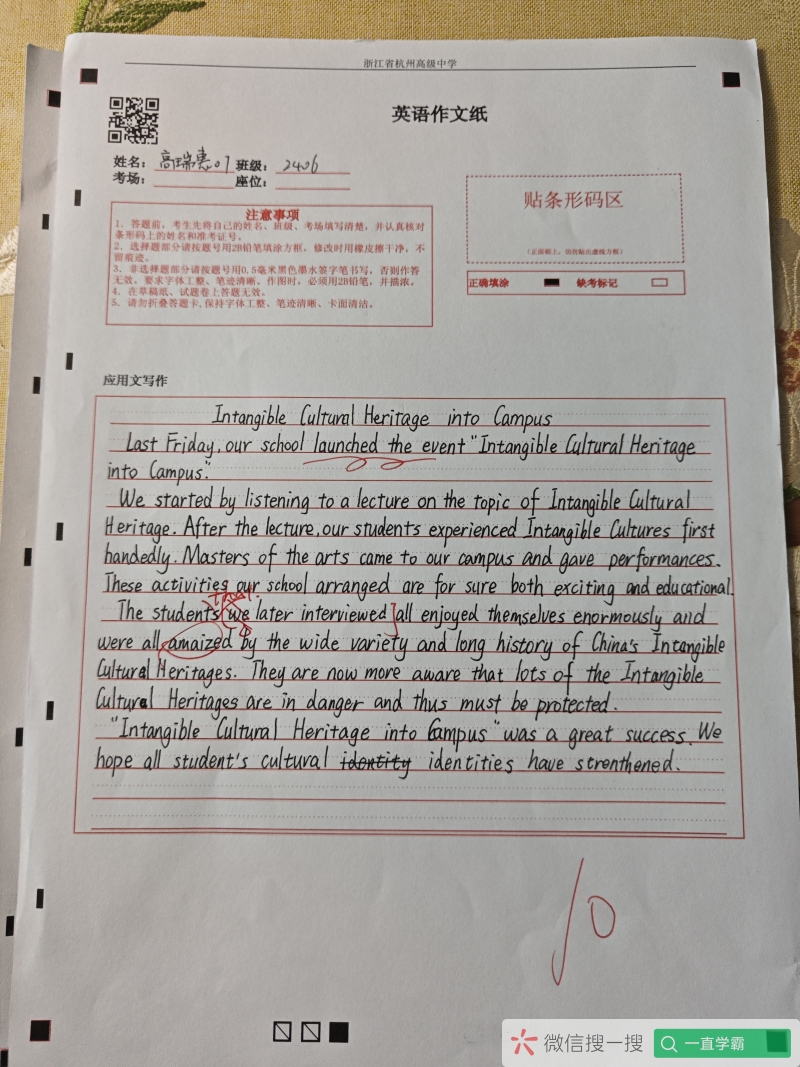 浙江省杭州高级中学
英语作文纸
姓名: 高瑞惠07 班级: 2406
考场: 座位:
注意事项
1. 答题前,考生先将自己的姓名、班级、考场填写清楚,并认真核对
条形码上的姓名和准考证号。
2. 选择题部分请按题号用2B铅笔填涂方框,修改时用橡皮擦干净,不
留痕迹。
3. 非选择题部分请按题号用0.5毫米黑色墨水签字笔书写,否则作答
无效。要求字体工整、笔迹清晰。作图时,必须用2B铅笔,并描浓。
4. 在草稿纸、试题卷上答题无效。
5. 请勿折叠答题卡,保持字体工整、笔迹清晰、卡面清洁。
贴条形码区
(正面朝上,切勿贴出虚线方框)
正确填涂 缺考标记
应用文写作
Intangible Cultural Heritage into Campus
Last Friday, our school launched the event "Intangible Cultural Heritage
into Campus".
We started by listening to a lecture on the topic of Intangible Cultural
Heritage. After the lecture, our students experienced Intangible Cultures first
handedly. Masters of the arts came to our campus and gave performances.
These activities our school arranged are for sure both exciting and educational.
The students we later interviewed all enjoyed themselves enormously and
were all amaized by the wide variety and long history of China's Intangible
Cultural Heritages. They are now more aware that lots of the Intangible
Cultural Heritages are in danger and thus must be protected.
"Intangible Cultural Heritage into Campus" was a great success. We
hope all student's cultural identity identities have strenthened.
10
微信搜一搜
一直学霸